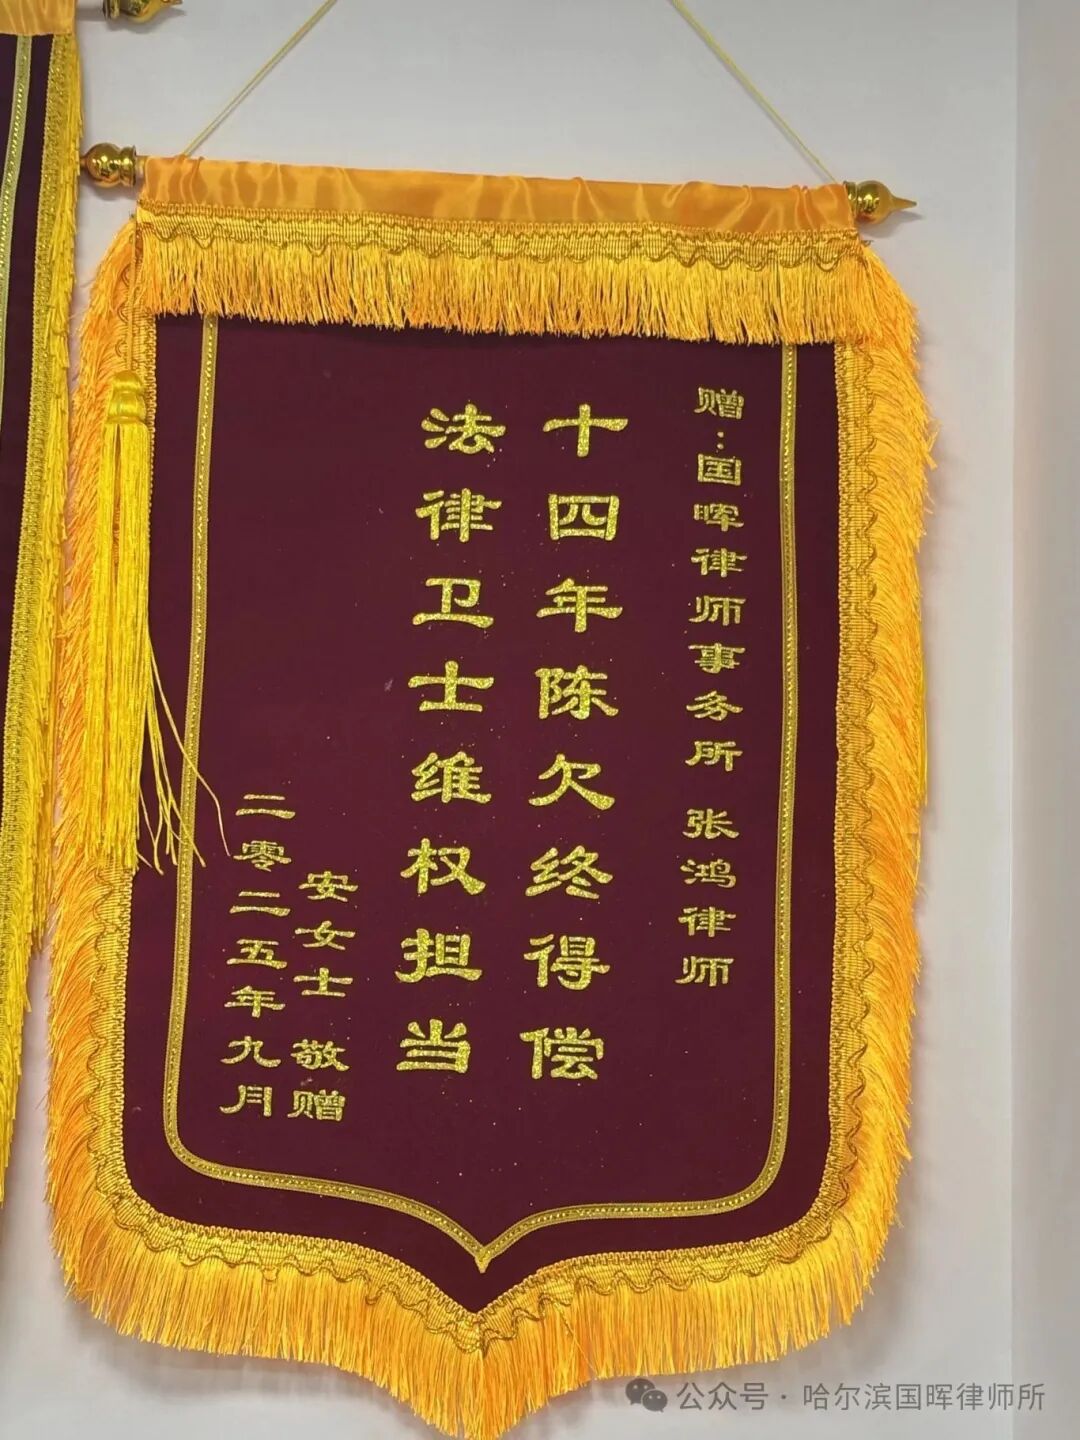 赠：国晖律师事务所 张鸿律师
十四年陈欠终得偿
法律卫士维权担当
安女士 敬赠
二零二五年九月
公众号·哈尔滨国晖律师所